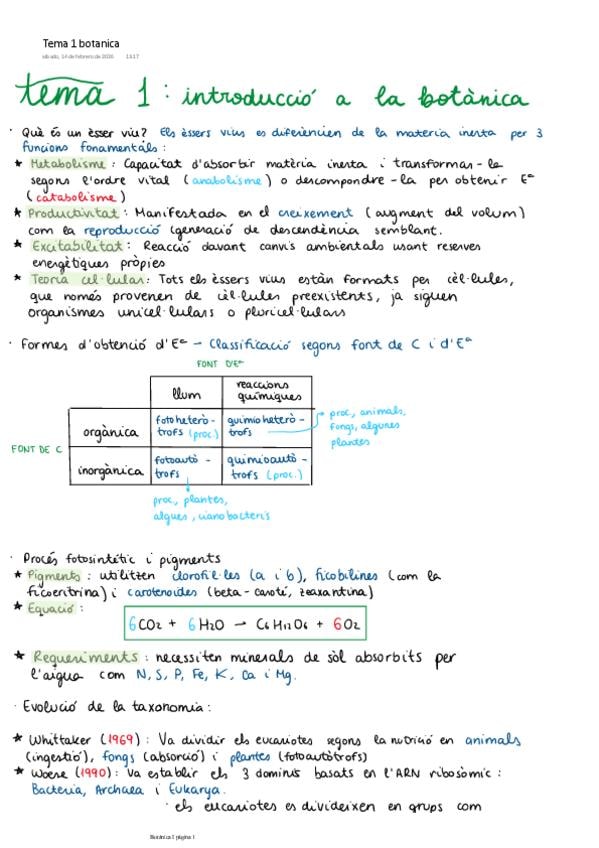 Tema 1 botanica
sábado, 14 de febrero de 2026 13:17
tema 1: introducció a la botànica
· Què és un ésser viu? Els éssers vius es diferencien de la materia inerta per 3
funcions fonamentals:
★ Metabolisme: Capacitat d'absorbir matèria inerta i transformar-la
segons l'ordre vital (anabolisme) o descompondre-la per obtenir Eª
(catabolisme)
★ Productivitat: Manifestada en el creixement (augment del volum)
com la reproducció (generació de descendència semblant.
★ Excitabilitat: Reacció davant canvis ambientals usant reserves
energètiques pròpies
★ Teoria cel·lular: Tots els éssers vius estàn formats per cèl·lules,
que només provenen de cèl·lules preexistents, ja siguen
organismes unicel·lulars o pluricel·lulars
· Formes d'obtenció d'Eª - Classificació segons font de C i d'Eª
FONT D'Eª
llum
reaccions
químiques
FONT DE C
orgànica
fotoheterò-
trofs (proc.)
quimioheterò-
trofs
proc., animals,
fongs, algunes
plantes
inorgànica
fotoautò-
trofs
quimioautò-
trofs (proc.)
proc., plantes,
algues, cianobacteris
· Procés fotosintétic i pigments
★ Pigments: utilitzen clorofil·les (a i b), ficobilines (com la
ficoeritrina) i carotenoides (beta-caroté, zeaxantina)
★ Equació:
6CO2 + 6H2O → C6H12O6 + 6O2
★ Requeriments: necessiten minerals de sòl absorbits per
l'aigua com N, S, P, Fe, K, Ca i Mg.
· Evolució de la taxonomia:
★ Whittaker (1969): Va dividir els eucariotes segons la nutrició en animals
(ingestió), fongs (absorció) i plantes (fotoautòtrofs)
★ Woese (1990): Va establir els 3 dominis basats en l'ARN ribosòmic:
Bacteria, Archaea i Eukarya.
· els eucariotes es divideixen en grups com
Botánica I página 1